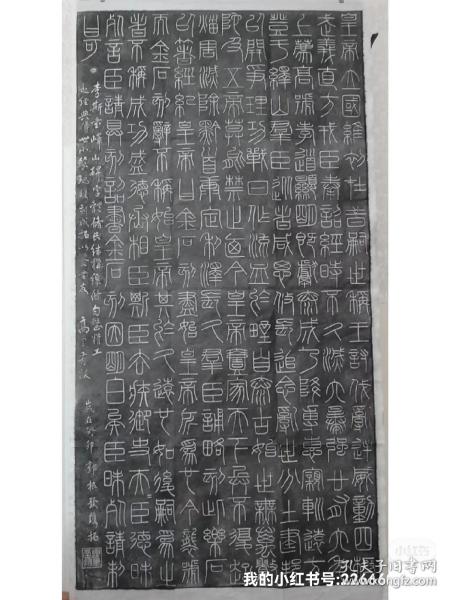 皇帝立國維初在昔嗣世稱王討伐亂逆威動四極
武義直方戎臣奉詔經時不久滅六暴強廿有六年
上薦高號孝道顯明既獻泰成乃降專惠親巡遠方
登于繹山群臣從者咸思攸長追念亂世分土建邦
以開爭理功戰日作流血於野自泰古始世無萬數
阤及五帝莫能禁止廼今皇帝壹家天下兵不復起
災害滅除黔首康定利澤長久群臣誦略刻此樂石
以著經紀皇帝曰金石刻盡始皇帝所為也今襲號
而金石刻辭不稱始皇帝其於久遠也如後嗣為之
者不稱成功盛德丞相臣斯臣去疾御史夫=臣德昧
死言臣請具刻詔書金石刻因明白矣臣昧死請制
曰可
李斯書嶧山碑
歲在
小红书
我的小红书号:22666
孔夫子旧书网